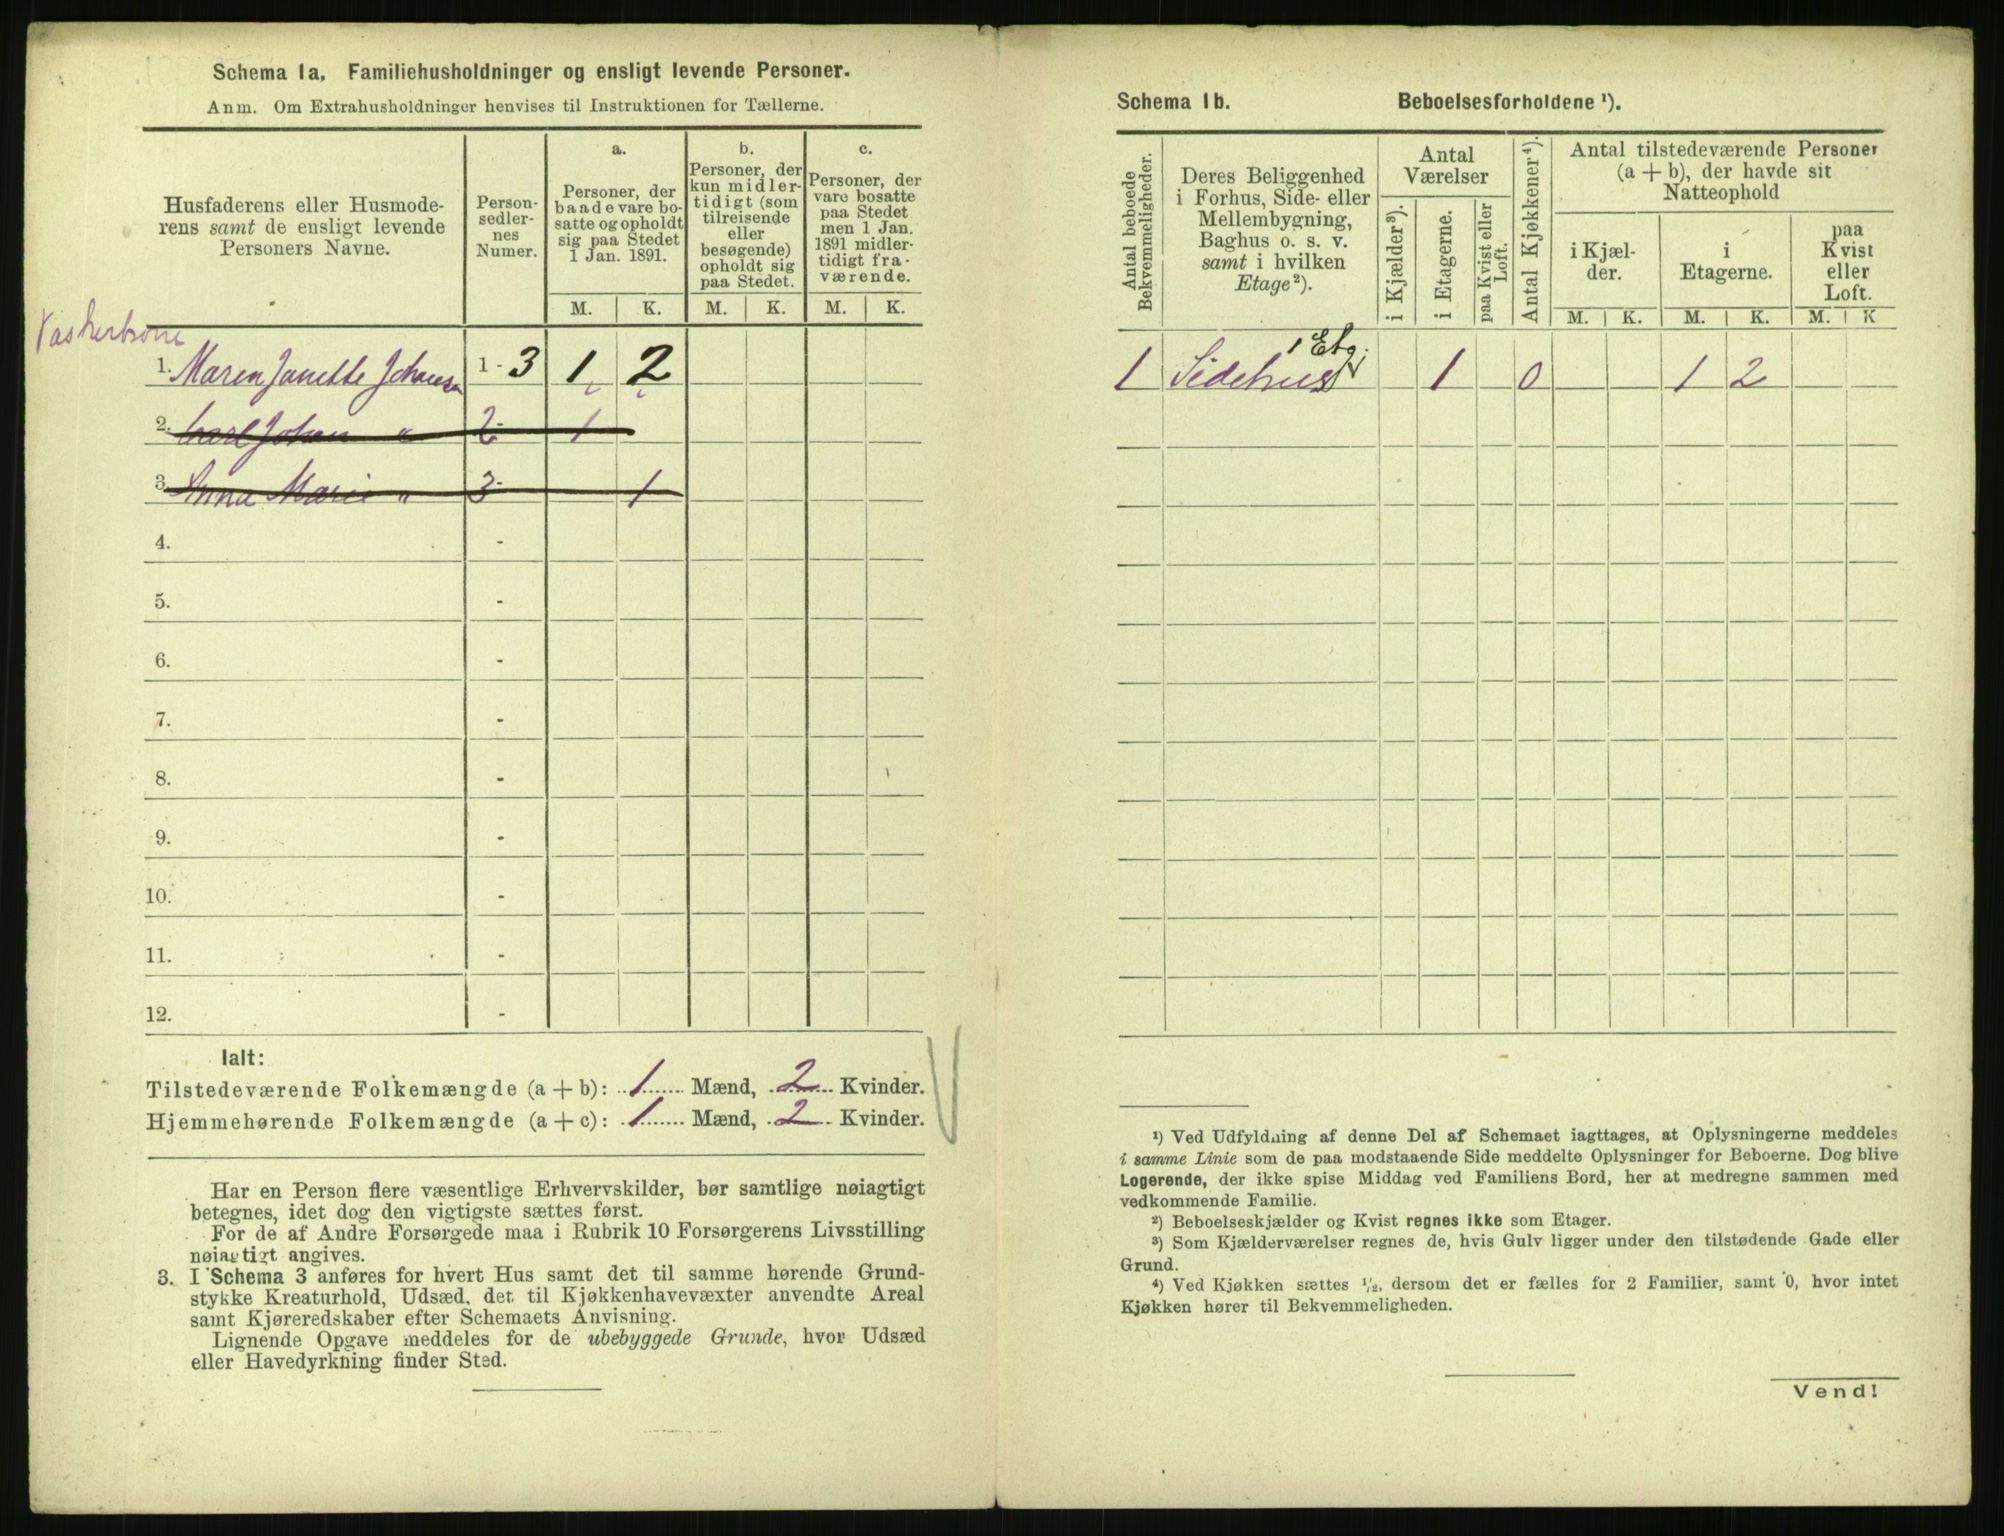 Schema 1a, Familiehusholdninger og ensligt levende Personer.
Anm. Om Extrahusholdninger henvises til Instruktionen for Tællerne.
Husfaderens eller Husmode-
rens samt de ensligt levende
Personers Navne.
Person-
sedler-
nes
Numer.
a.
Personer, der
baade vare bo-
satte og opholdt
sig paa Stedet
1 Jan. 1891.
b.
Personer, der
kun midler-
tidigt (som
tilreisende
eller
besøgende)
opholdt sig
paa Stedet.
c.
Personer, der
vare bosatte
paa Stedet
men 1 Jan.
1891 midler-
tidigt fra-
værende.
M. K. M. K. M. K.
Vaskerkone
1. Maren Janette Johansen 1 - 3 1 2
2. Carl Johan " 2 - 1
3. Anna Marie " 3 - 1
4. -
5. -
6. -
7. -
8. -
9. -
10. -
11. -
12. -
Ialt:
Tilstedeværende Folkemængde (a + b): 1 Mænd, 2 Kvinder.
Hjemmehørende Folkemængde (a + c): 1 Mænd, 2 Kvinder.
Har en Person flere væsentlige Erhvervskilder, bør samtlige nøiagtigt
betegnes, idet dog den vigtigste sættes først.
For de af Andre Forsørgede maa i Rubrik 10 Forsørgerens Livsstilling
nøiagtigt angives.
3. I Schema 3 anføres for hvert Hus samt det til samme hørende Grund-
stykke Kreaturhold, Udsæd, det til Kjøkkenhavevæxter anvendte Areal
samt Kjøreredskaber efter Schemaets Anvisning.
Lignende Opgave meddeles for de ubebyggede Grunde, hvor Udsæd
eller Havedyrkning finder Sted.
Schema 1b. Beboelsesforholdene ¹).
Antal beboede
Bekvemmeligheder.
Deres Beliggenhed
i Forhus, Side- eller
Mellembygning,
Baghus o. s. v.
samt i hvilken
Etage²).
Antal
Værelser
i Kjælder³).
i Etagerne.
paa Kvist eller
Loft.
Antal Kjøkkener⁴).
Antal tilstedeværende Personer
(a + b), der havde sit
Natteophold
i Kjæl-
der.
i
Etagerne.
paa
Kvist
eller
Loft.
M. K. M. K. M. K
1 Etg.
1 Sidehus 1 0 1 2
¹) Ved Udfyldning af denne Del af Schemaet iagttages, at Oplysningerne meddeles
i samme Linie som de paa modstaaende Side meddelte Oplysninger for Beboerne. Dog blive
Logerende, der ikke spise Middag ved Familiens Bord, her at medregne sammen med
vedkommende Familie.
²) Beboelseskjælder og Kvist regnes ikke som Etager.
³) Som Kjælderværelser regnes de, hvis Gulv ligger under den tilstødende Gade eller
Grund.
⁴) Ved Kjøkken sættes ½, dersom det er fælles for 2 Familier, samt 0, hvor intet
Kjøkken hører til Bekvemmeligheden.
Vend!